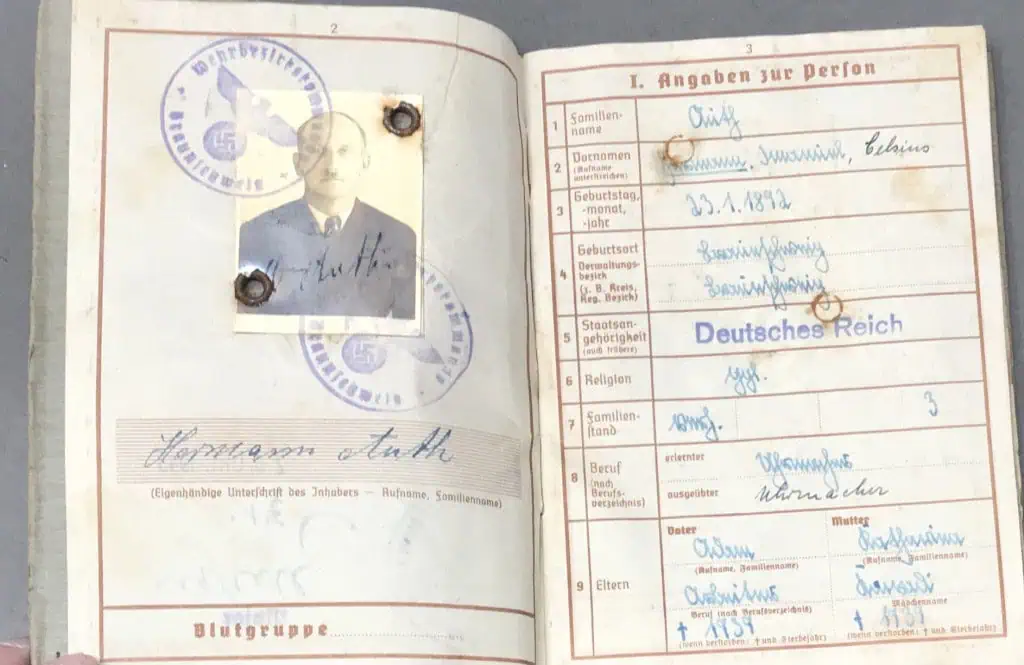 2
Wehrbezirkskommando
Braunschweig
Hermann Auth
(Eigenhändige Unterschrift des Inhabers — Rufname, Familienname)
Blutgruppe
3
I. Angaben zur Person
1 Familien-
name
Auth
2 Vornamen
(Rufname
unterstreichen)
Hermann, Celsius
3 Geburtstag,
-monat,
-jahr
23.1.1892
4 Geburtsort
Verwaltungs-
bezirk
(z. B. Kreis,
Reg. Bezirk)
Braunschweig
Braunschweig
5 Staatsan-
gehörigkeit
(auch frühere)
Deutsches Reich
6 Religion
ggl.
7 Familien-
stand
verh.
3
8 Beruf
(nach
Berufs-
verzeichnis)
erlernter
Uhrmacher
ausgeübter
Uhrmacher
9 Eltern
Vater
Mutter
Adam
Katharina
(Rufname, Familienname)
(Rufname, Familienname)
Beruf (nach Berufsverzeichnis)
Mädchenname
† 1939
† 1939
(wenn verstorben: † und Sterbejahr)
(wenn verstorben: † und Sterbejahr)